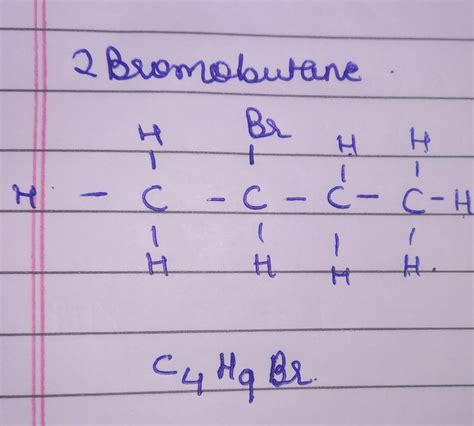 2 Bromobutane.
H Br H H
H - C - C - C - C - H
H H H H.
C4H9Br.